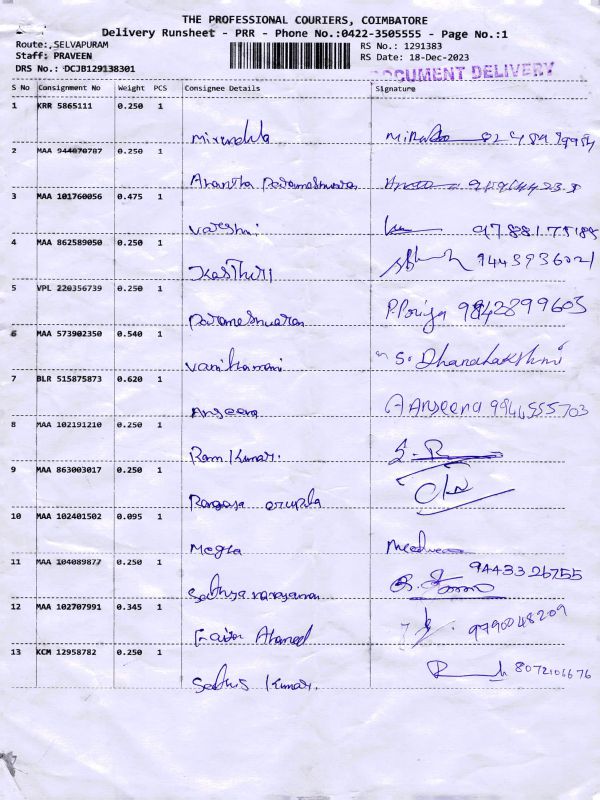 THE PROFESSIONAL COURIERS, COIMBATORE
Delivery Runsheet - PRR - Phone No.:0422-3505555 - Page No.:1
Route:,SELVAPURAM
Staff: PRAVEEN
DRS No.: DCJB129138301
RS No.: 1291383
RS Date: 18-Dec-2023
DOCUMENT DELIVERY
S No Consignment No Weight PCS Consignee Details Signature
1 KRR 5865111 0.250 1
2 MAA 944070787 0.250 1
3 MAA 101760056 0.475 1
Varshni
4 MAA 862589050 0.250 1
Kasthuri 9443936021
5 VPL 220356739 0.250 1
Parameshwaran P.Poriya 9842899603
6 MAA 573902350 0.540 1
S. Dhanalakshmi
7 BLR 515875873 0.620 1
Anseera A Anseera 9944555703
8 MAA 102191210 0.250 1
Ram Kumar.
9 MAA 863003017 0.250 1
10 MAA 102401502 0.095 1
Megha
11 MAA 104089877 0.250 1
Sathya narayanan 9443326755
12 MAA 102707991 0.345 1
Ahamed 9790048209
13 KCM 12958782 0.250 1
Sathis Kumar. 8072106676